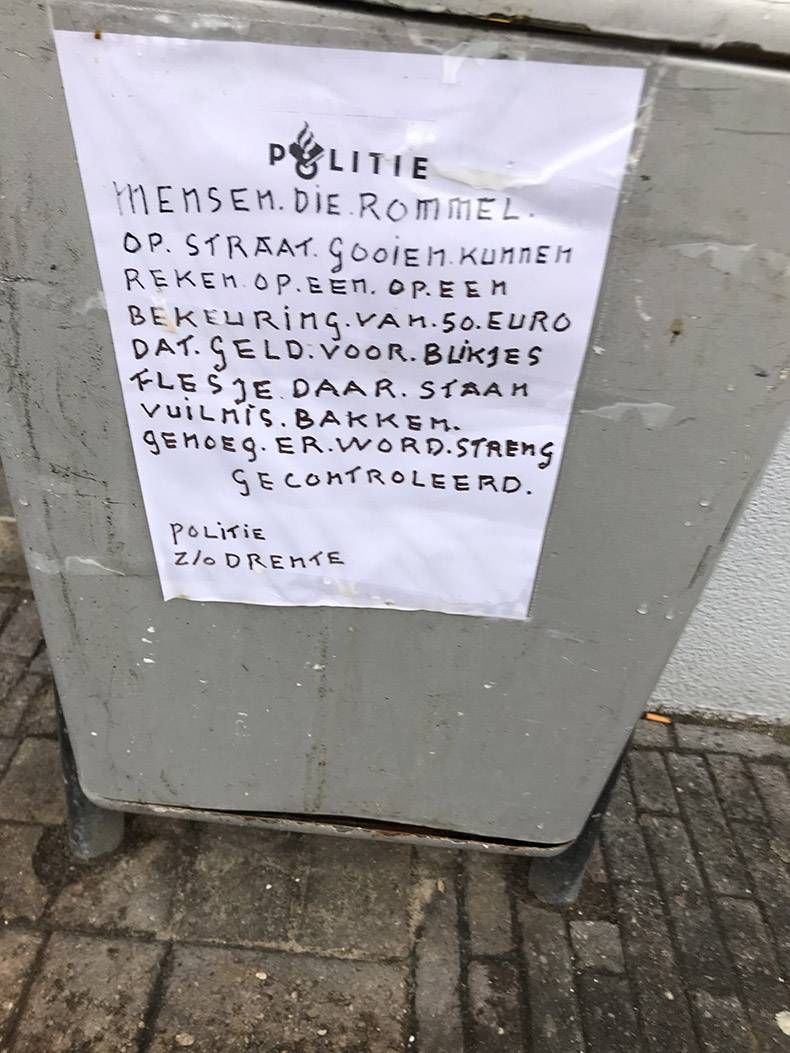 POLITIE
MENSEN.DIE.ROMMEL.
OP.STRAAT.GOOIEN.KUNNEN
REKEN.OP.EEN.OP.EEN
BEKEURING.VAN.50.EURO
DAT.GELD.VOOR.BLIKJES
FLESJE DAAR.STAAN
VUILNIS.BAKKEN.
GENOEG.ER.WORD.STRENG
GECONTROLEERD.
POLITIE
Z/O DRENTE